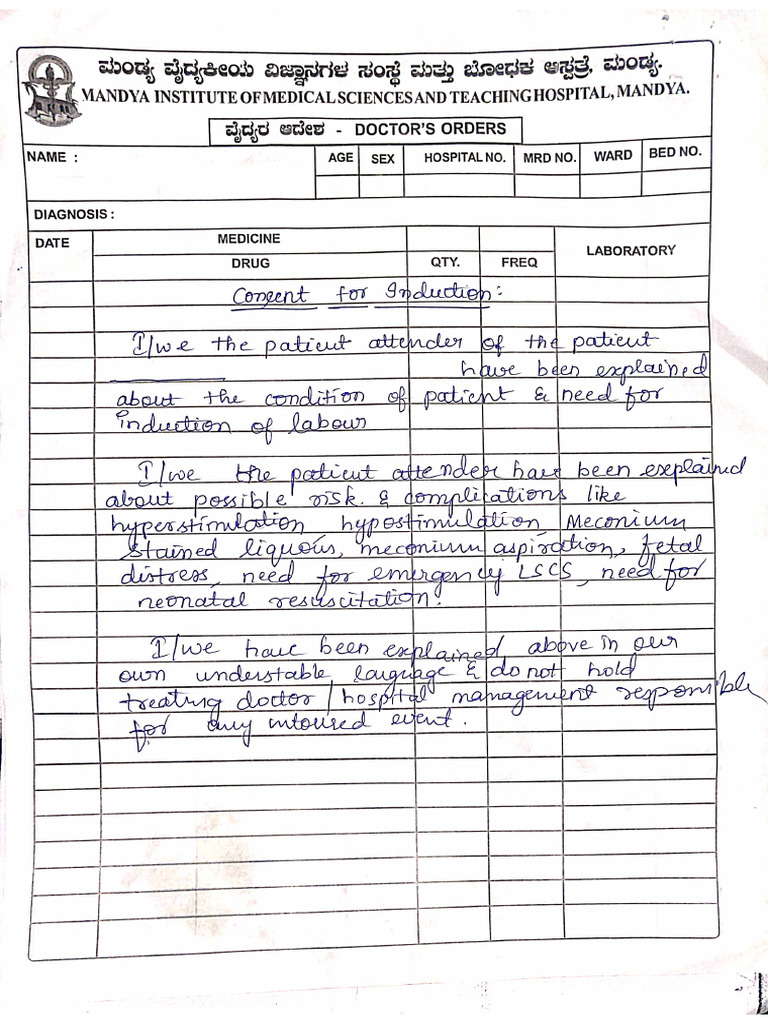 ಮಂಡ್ಯ ವೈದ್ಯಕೀಯ ವಿಜ್ಞಾನಗಳ ಸಂಸ್ಥೆ ಮತ್ತು ಬೋಧಕ ಆಸ್ಪತ್ರೆ, ಮಂಡ್ಯ.
MANDYA INSTITUTE OF MEDICAL SCIENCES AND TEACHING HOSPITAL, MANDYA.
ವೈದ್ಯರ ಆದೇಶ - DOCTOR'S ORDERS
NAME : AGE SEX HOSPITAL NO. MRD NO. WARD BED NO.
DIAGNOSIS :
DATE MEDICINE LABORATORY
DRUG QTY. FREQ
Consent for Induction:
I/we the patient attender of the patient
have been explained
about the condition of patient & need for
induction of labour
I/we the patient attender have been explained
about possible risk & complications like
hyperstimulation, hypostimulation, Meconium
stained liquous, meconium aspiration, fetal
distress, need for emergency LSCS, need for
neonatal resuscitation.
I/we have been explained above in our
own understable language & do not hold
treating doctor / hospital management responsible
for any intoured event.